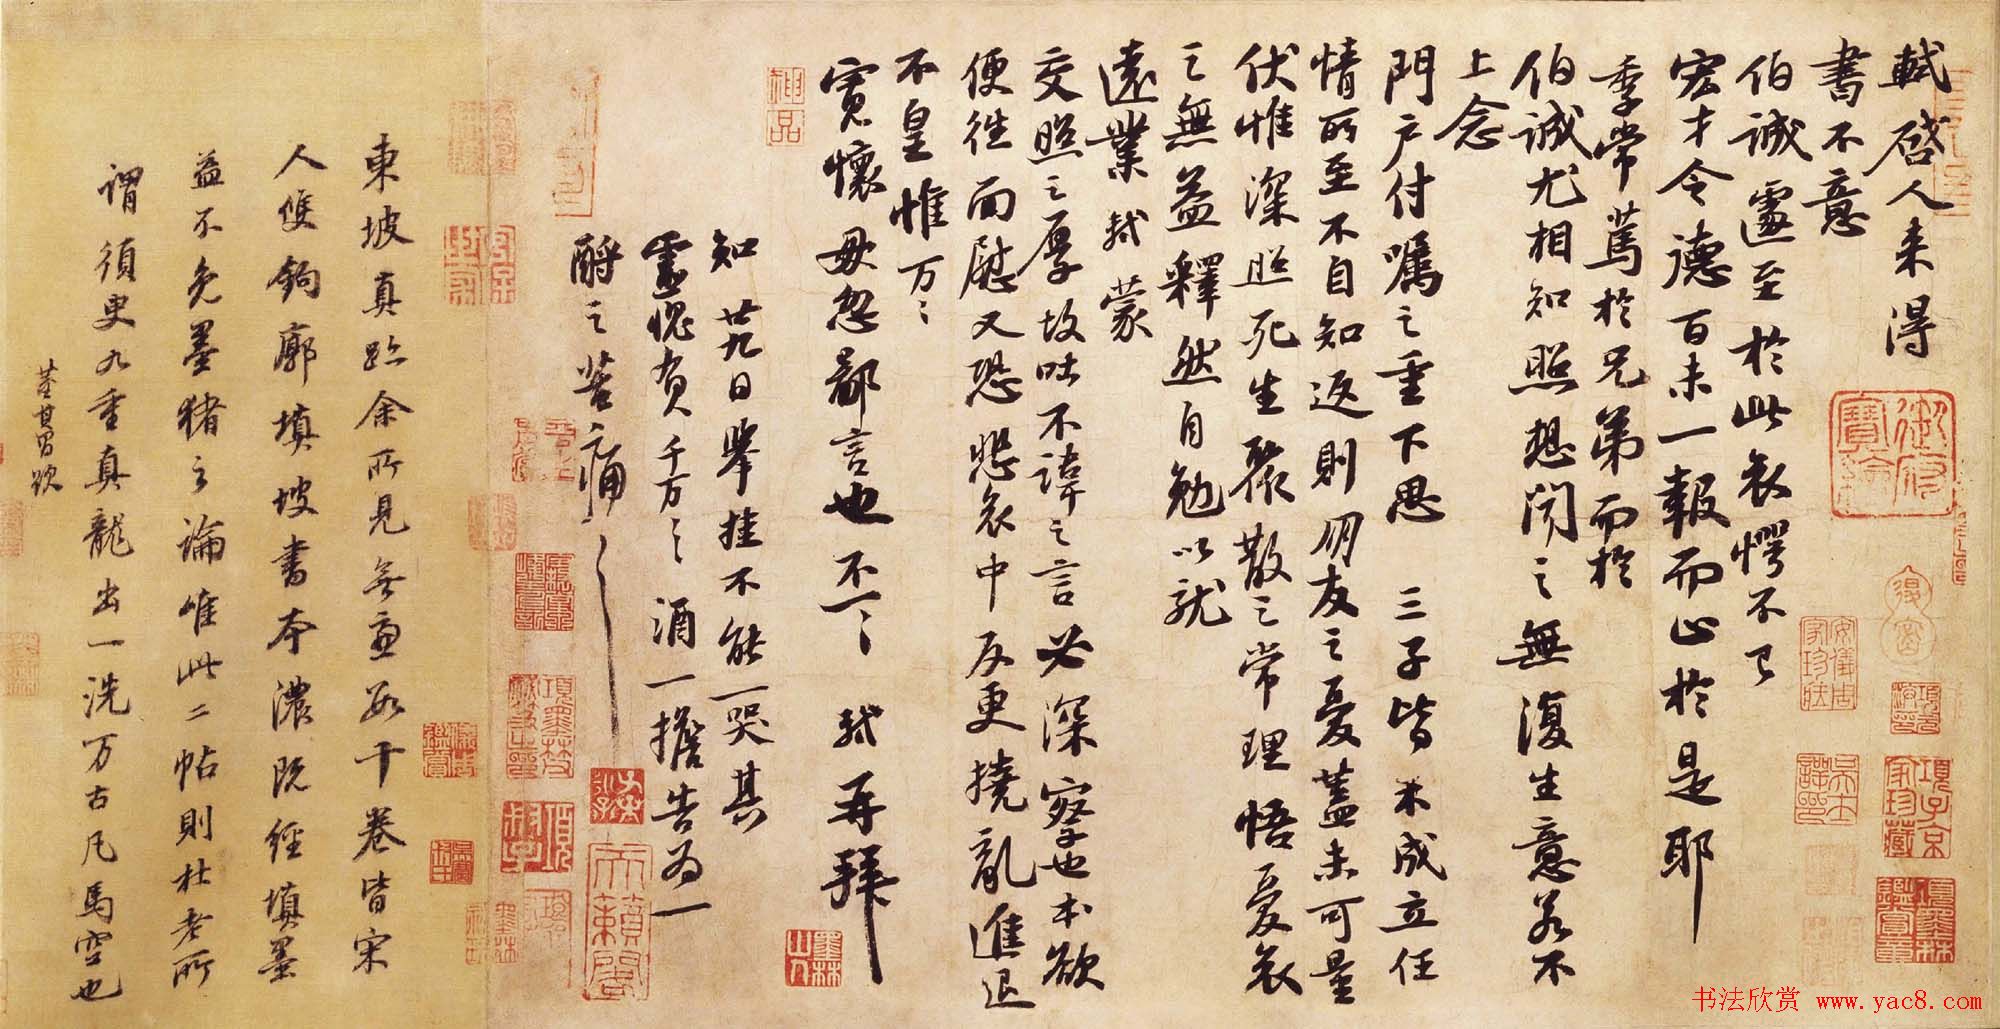 軾啓人来得
書不意
伯誠遽至於此哀愕不已
宏才令德百未一報而止於是耶
季常篤於兄弟而於
伯誠尤相知照想聞之無復生意若不
上念
門户付嘱之重下思三子皆未成立任
情所至不自知返則朋友之憂盖未可量
伏惟深照死生聚散之常理悟憂哀
之無益釋然自勉以就
遠業軾蒙
交照之厚故吐不諱之言必深察也本欲
便往面慰又恐悲哀中反更撓亂進退
不皇惟万〻
寬懷毋忽鄙言也不一〻軾再拜
知廿九日舉挂不能一哭其
靈愧負千万〻酒一擔告為一
酹之苦痛〻
東坡真跡余所見無慮數十卷皆宋
人雙鉤廓填坡書本濃既經填墨
益不免墨猪之論唯此二帖則杜老所
謂須臾九重真龍出一洗万古凡馬空也
董其昌跋
御府寶繪
項子京家珍藏
項墨林鑑賞章
安儀周家珍藏
神品
墨林山人
天籟閣
书法欣赏 www.yac8.com